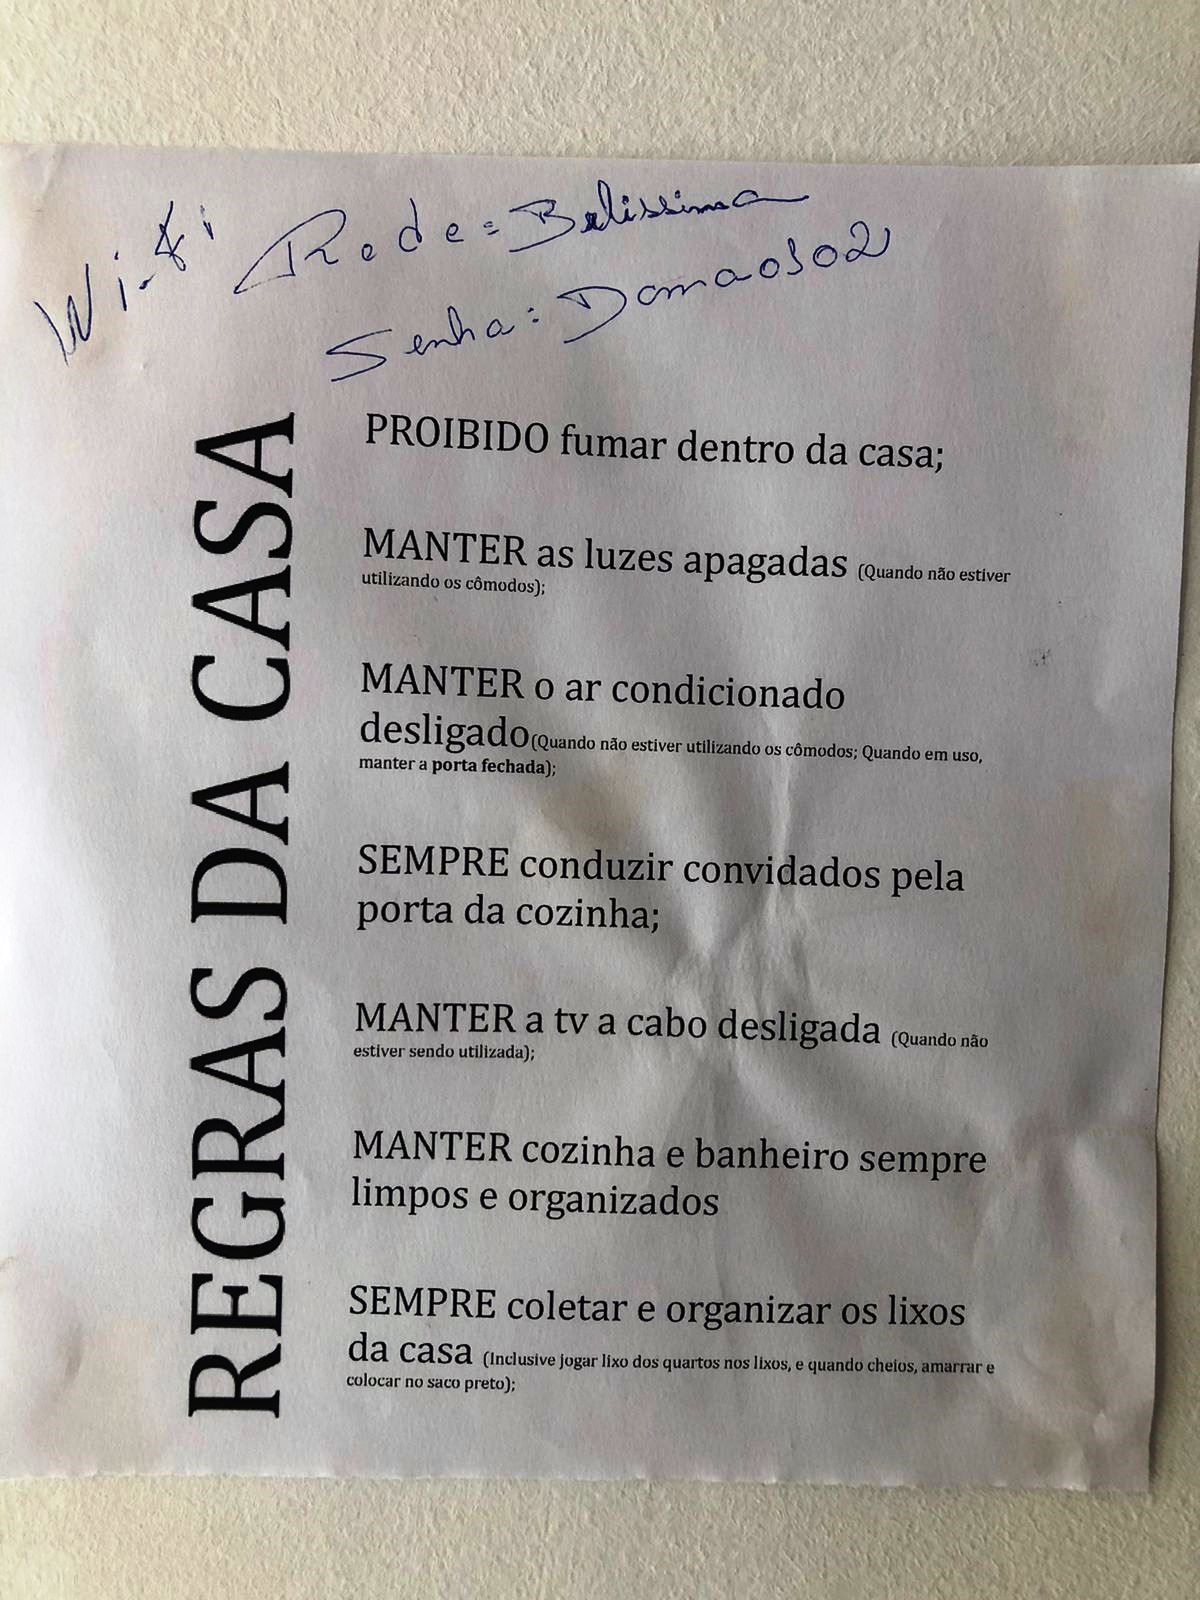 Wi-fi Rede = Belissima
Senha: Dama0302
REGRAS DA CASA
PROIBIDO fumar dentro da casa;
MANTER as luzes apagadas (Quando não estiver
utilizando os cômodos);
MANTER o ar condicionado
desligado(Quando não estiver utilizando os cômodos; Quando em uso,
manter a porta fechada);
SEMPRE conduzir convidados pela
porta da cozinha;
MANTER a tv a cabo desligada (Quando não
estiver sendo utilizada);
MANTER cozinha e banheiro sempre
limpos e organizados
SEMPRE coletar e organizar os lixos
da casa (Inclusive jogar lixo dos quartos nos lixos, e quando cheios, amarrar e
colocar no saco preto);